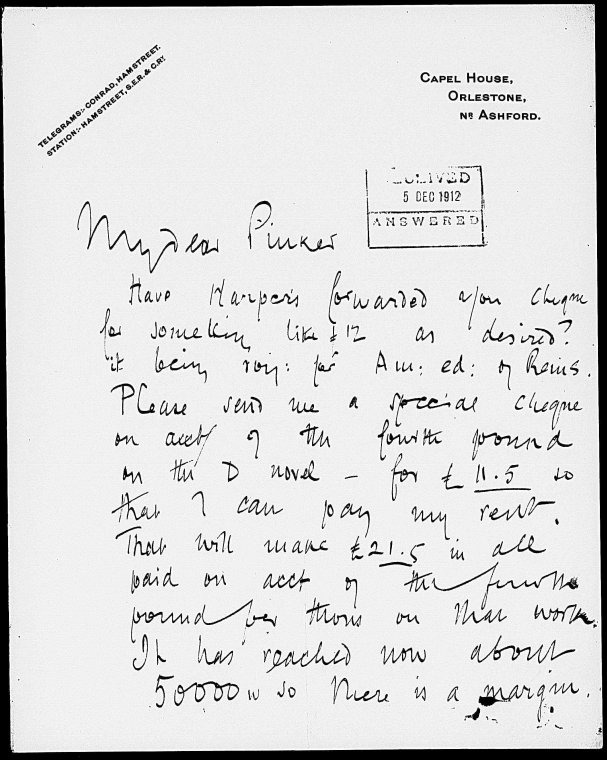 TELEGRAMS:- CONRAD, HAMSTREET.
STATION:- HAMSTREET, S.E.R. & C.RY.
CAPEL HOUSE,
ORLESTONE,
NR ASHFORD.
RECEIVED
5 DEC 1912
ANSWERED
My dear Pinker
Have Harpers forwarded you cheque
for something like £12 as desired?
it being roy: for Am: ed: of Remins.
Please send me a special cheque
on acct of the fourth pound
on the D novel – for £ 11.5 so
that I can pay my rent.
That will make £21.5 in all
paid on acct of the fourth
pound per thous on that work.
It has reached now about
50000 w so there is a margin.